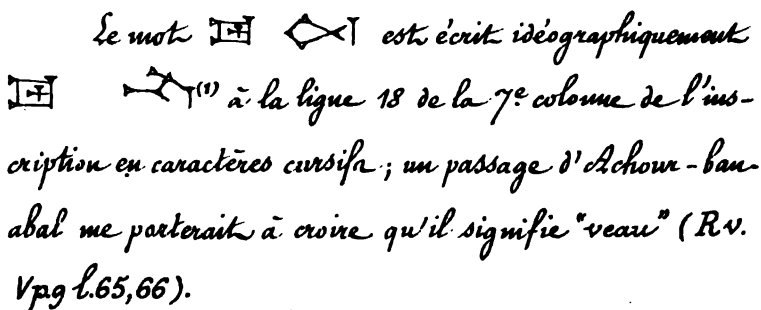 Le mot est écrit idéographiquement
(1) à la ligne 18 de la 7e colonne de l'ins-
cription en caractères cursifs ; un passage d'Achour-ban-
abal me porterait à croire qu'il signifie "veau" (R v.
V pg l. 65, 66).